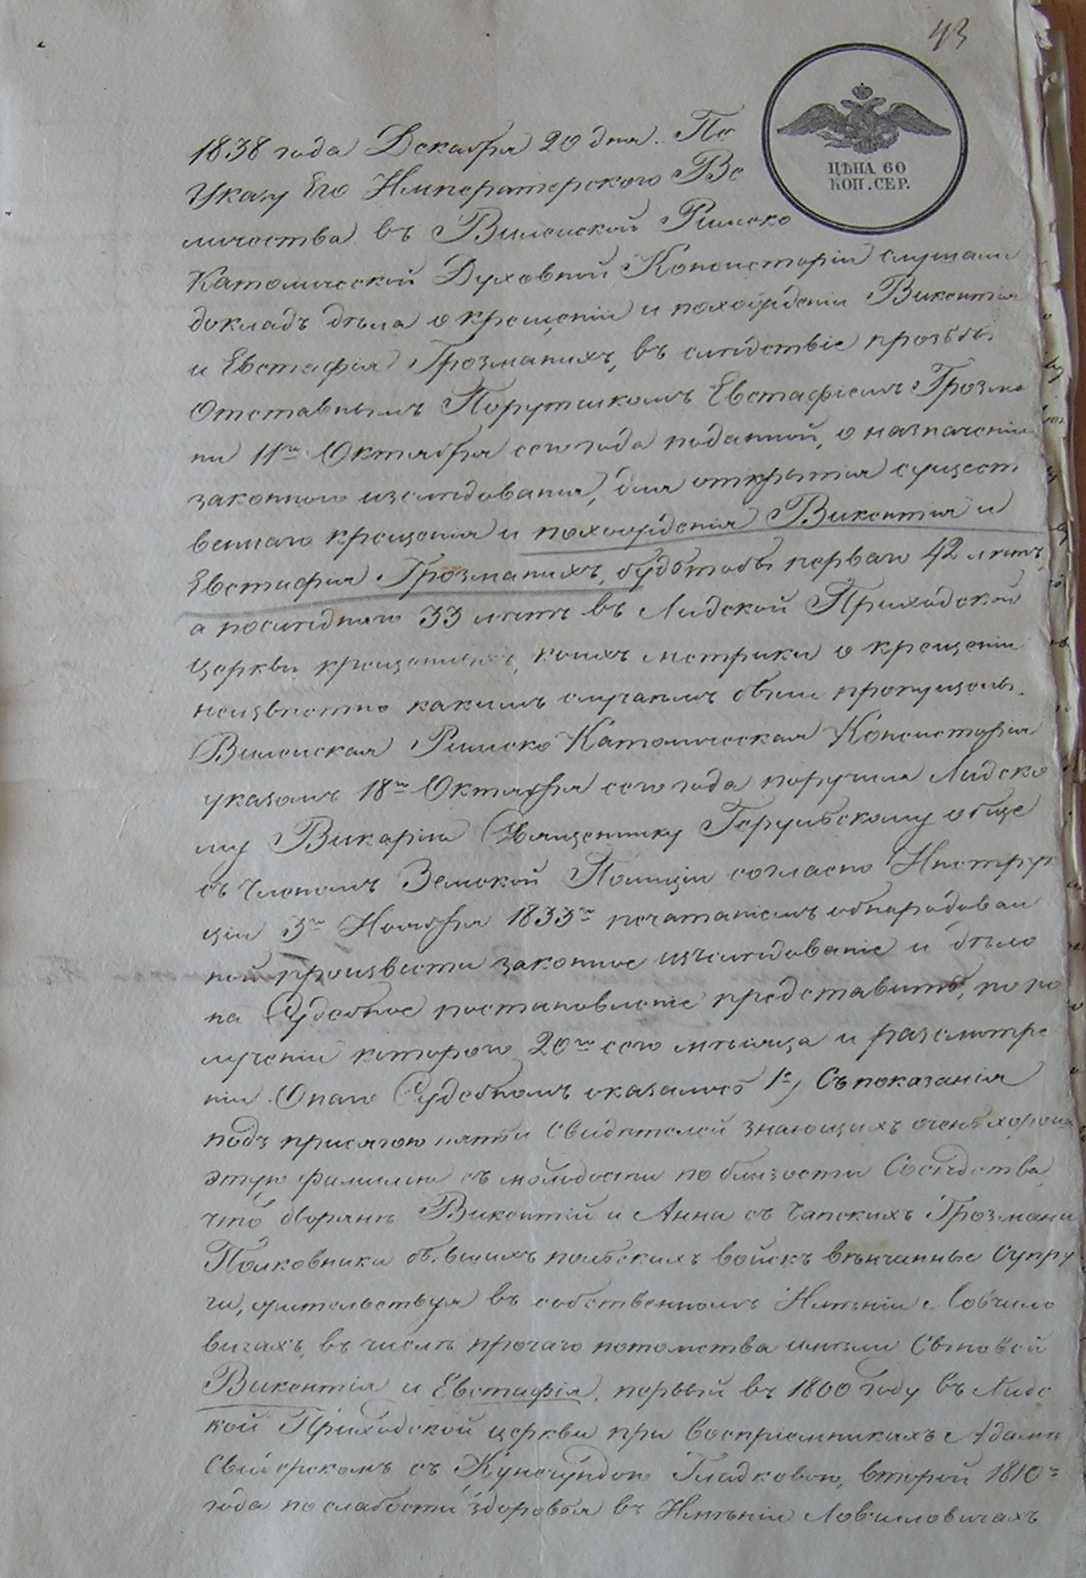 43
ЦѢНА 60
КОП. СЕР.
1838 года Декабря 20 дня. По
Указу Его Императорского Ве
личества въ Виленской Римско
Католической Духовной Консисторіи слушали
докладъ дѣла о крещеніи и похожденіи Викентія
и Евстафія Грозманихъ, въ слѣдствіе прозьбы
Отставнымъ Порутчикомъ Евстафіемъ Грозма
ни 11го Октября сего года поданной, о назначеніи
законного изслѣдованія, для открытія сущест
веннаго крещенія и похожденія Викентія и
Евстафія Грозманихъ, будьтобы перваго 42 лѣтъ,
а послѣдняго 33 лѣтъ въ Лидской Приходской
церкви крещенныхъ, коихъ метрики о крещеніи
неизвѣстно какимъ случаемъ были пропущены.
Виленская Римско Католическая Консисторія
указомъ 18го Октября сего года поручила Лидско
му Викарію Священнику обще
съ Членомъ Земской Полиціи согласно Инструк
ціи 3го Ноября 1833го печатаніемъ обнародован
ной произвести законное изслѣдованіе и дѣло
на Судебное постановленіе представить, по по
лученіи которого 20го сего мѣсяца и разсмотре
ніи Онаго Судебномъ оказалось 1е, Съ показанія
подъ присягою пяти Свидѣтелей знающихъ очень хорошо
этую фамилію съ молодости по близости Сосѣдства,
что дворяне Викентій и Анна съ Чапскихъ Грозмани
Полковники бывшихъ польскихъ войскъ вѣнчанные Супру
ги, жительствуя въ собственномъ Имѣніи Ловчило
вичахъ, въ числѣ прочаго потомства имѣли Сыновей
Викентія и Евстафія, первый въ 1800 году въ Лидс
кой Приходской церкви при воспріемникахъ Адамѣ
съ Кунегундою Гладковою, второй 1810го
года по слабости здоровья въ Имѣніи Ловчиловичахъ